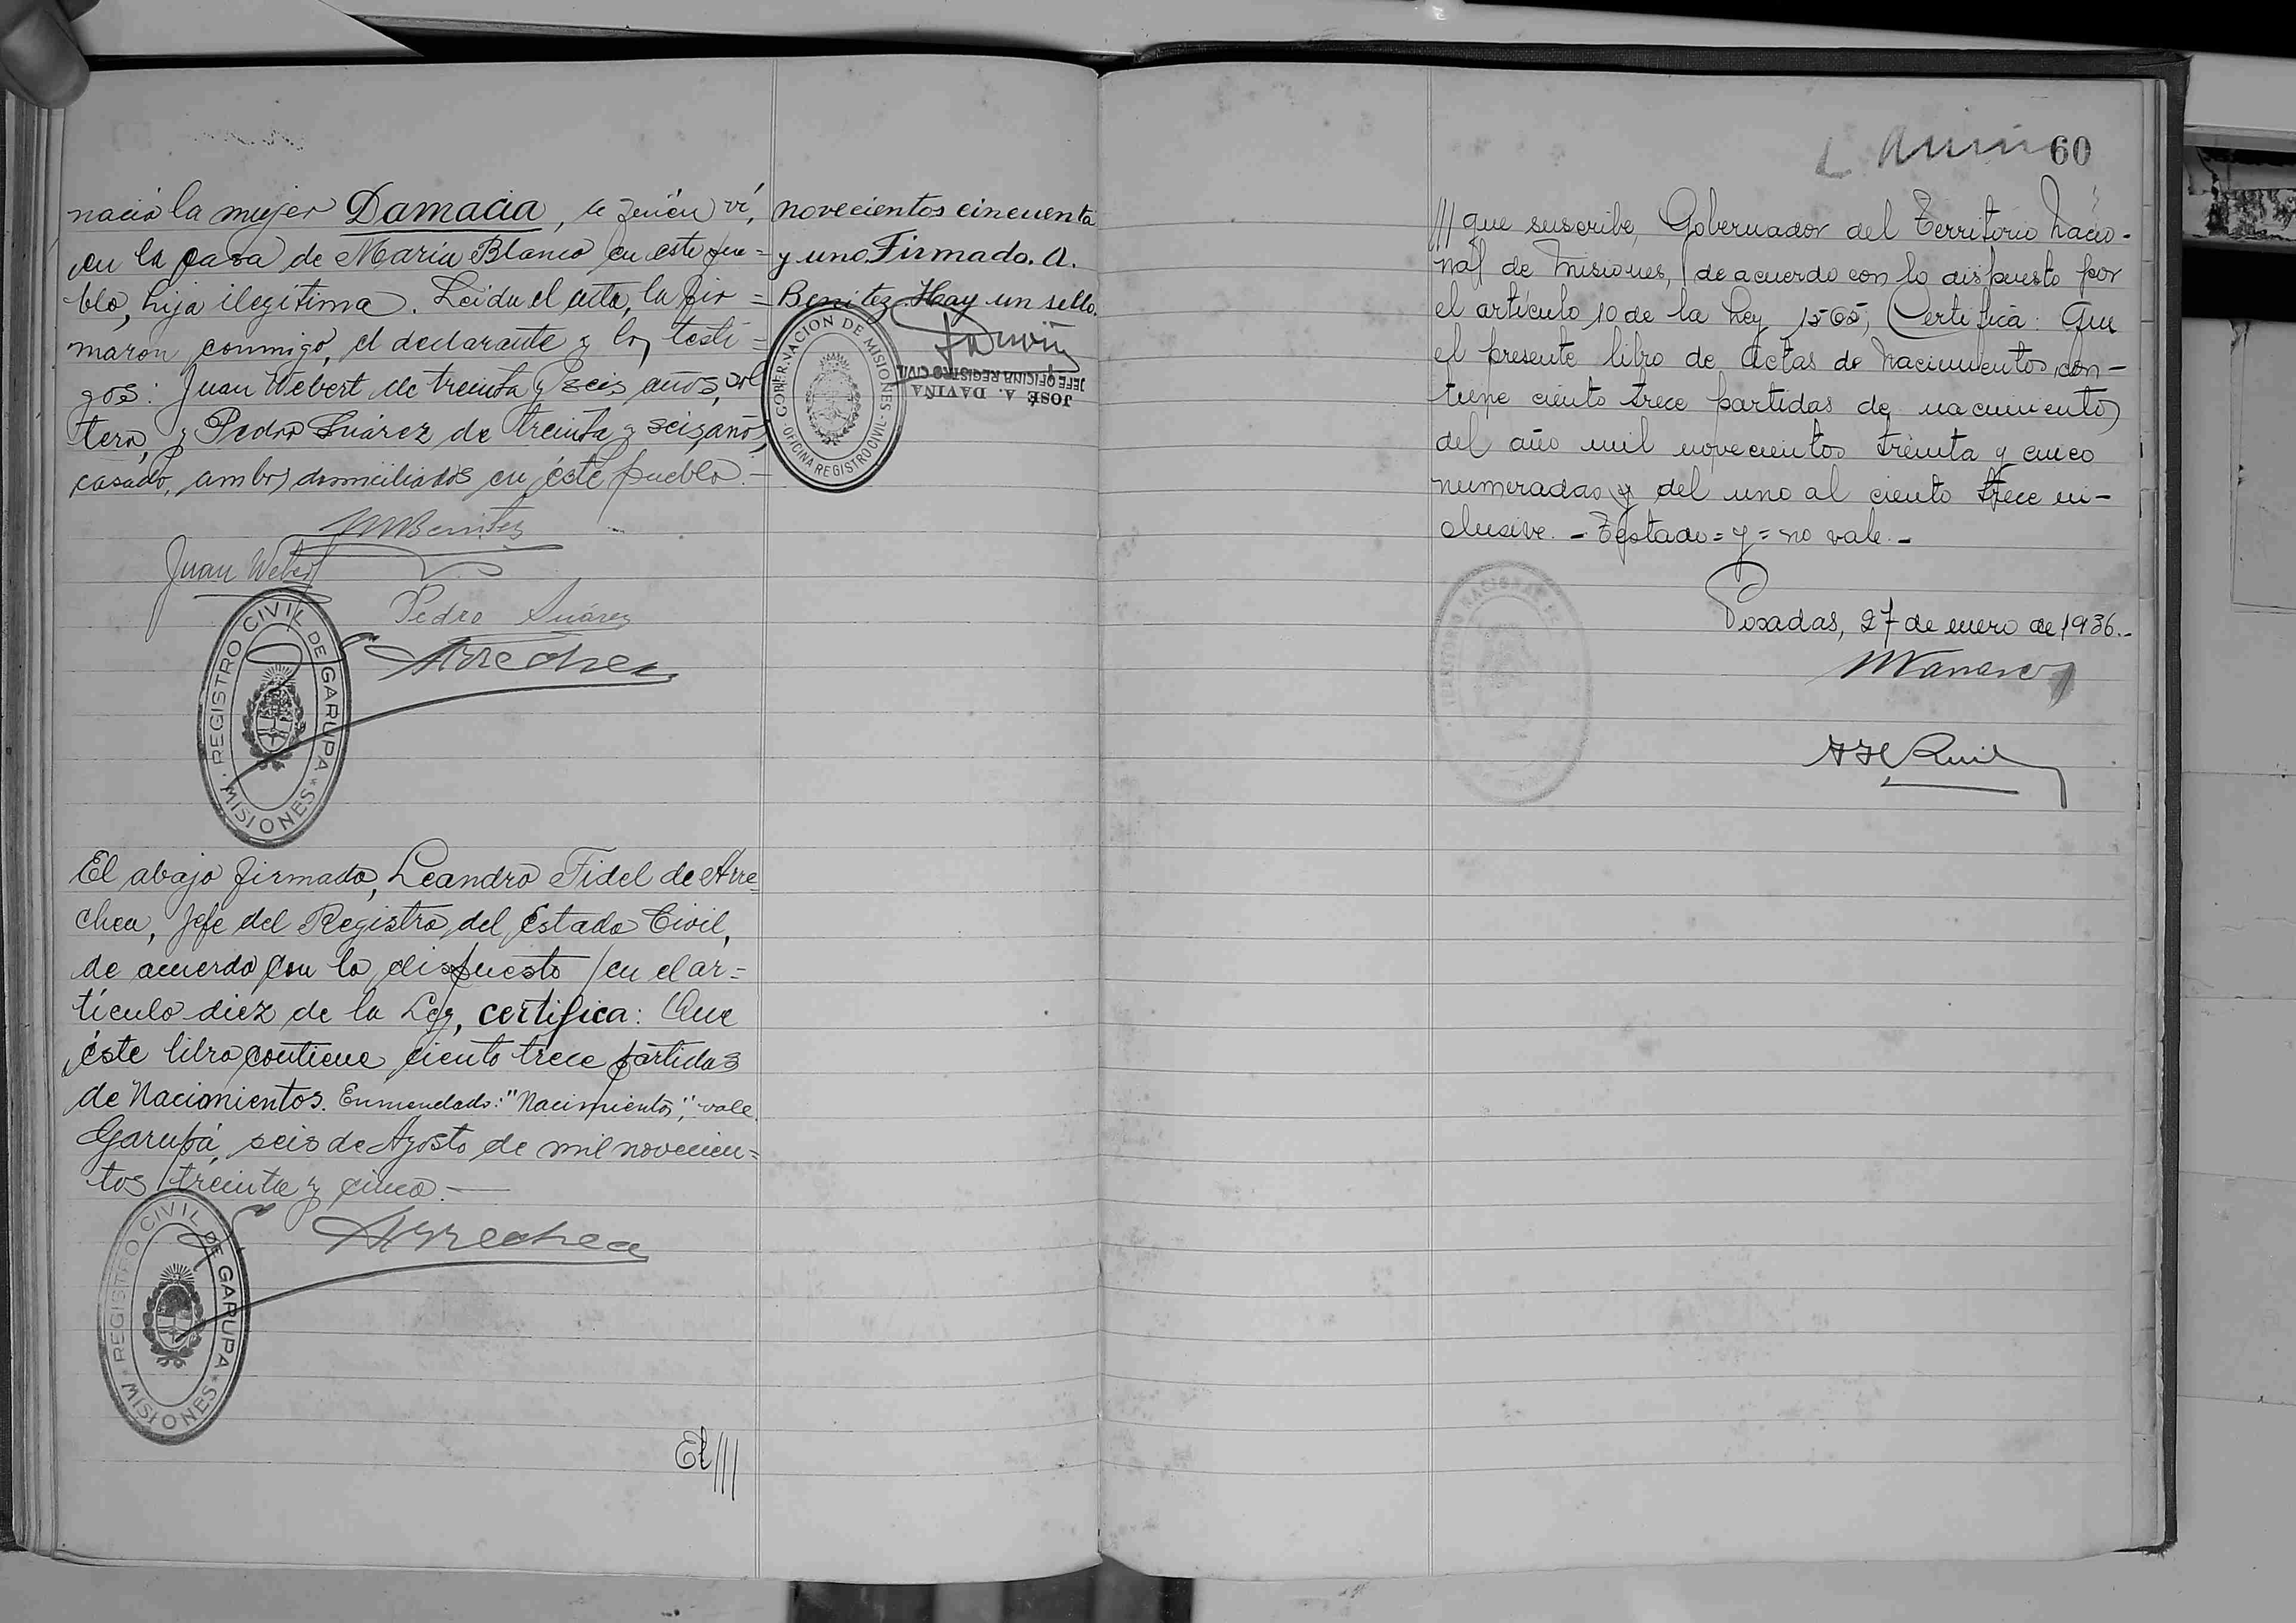 nació la mujer Damacia, a quien ví,
en la casa de María Blanco en este pue=
blo, hija ilegítima. Leída el acta, la fir=
maron conmigo, el declarante y los testi=
gos: Juan Webert de treinta y seis años, sol
tero, y Pedro Suárez de treinta y seis años,
casado, ambos domiciliados en éste pueblo.—
MBenitez
Juan Webert
Pedro Suárez
Arrechea
REGISTRO CIVIL DE GARUPA
MISIONES
El abajo firmado, Leandro Fidel de Arre=
chea, Jefe del Registro del Estado Civil,
de acuerdo con lo dispuesto en el ar=
tículo diez de la Ley, certifica: Que
éste libro contiene ciento trece partidas
de Nacimientos. Enmendado: "Nacimientos", vale.
Garupá, seis de Agosto de mil novecien=
tos treinta y cinco.—
Arrechea
REGISTRO CIVIL DE GARUPA
MISIONES
El///
novecientos cincuenta
y uno. Firmado. A.
Benitez. Hay un sello.
GOBERNACION DE MISIONES
OFICINA REGISTRO CIVIL
JOSÉ A. DAVIÑA
JEFE OFICINA REGISTRO CIVIL
60
/// que suscribe, Gobernador del Territorio Nacio-
nal de Misiones, de acuerdo con lo dispuesto por
el artículo 10 de la Ley 1565, Certifica: Que
el presente libro de actas de Nacimientos, con-
tiene ciento trece partidas de nacimiento
del año mil novecientos treinta y cinco
numeradas y del uno al ciento trece in-
clusive.- Testado = y = no vale.-
Posadas, 27 de enero de 1936.-